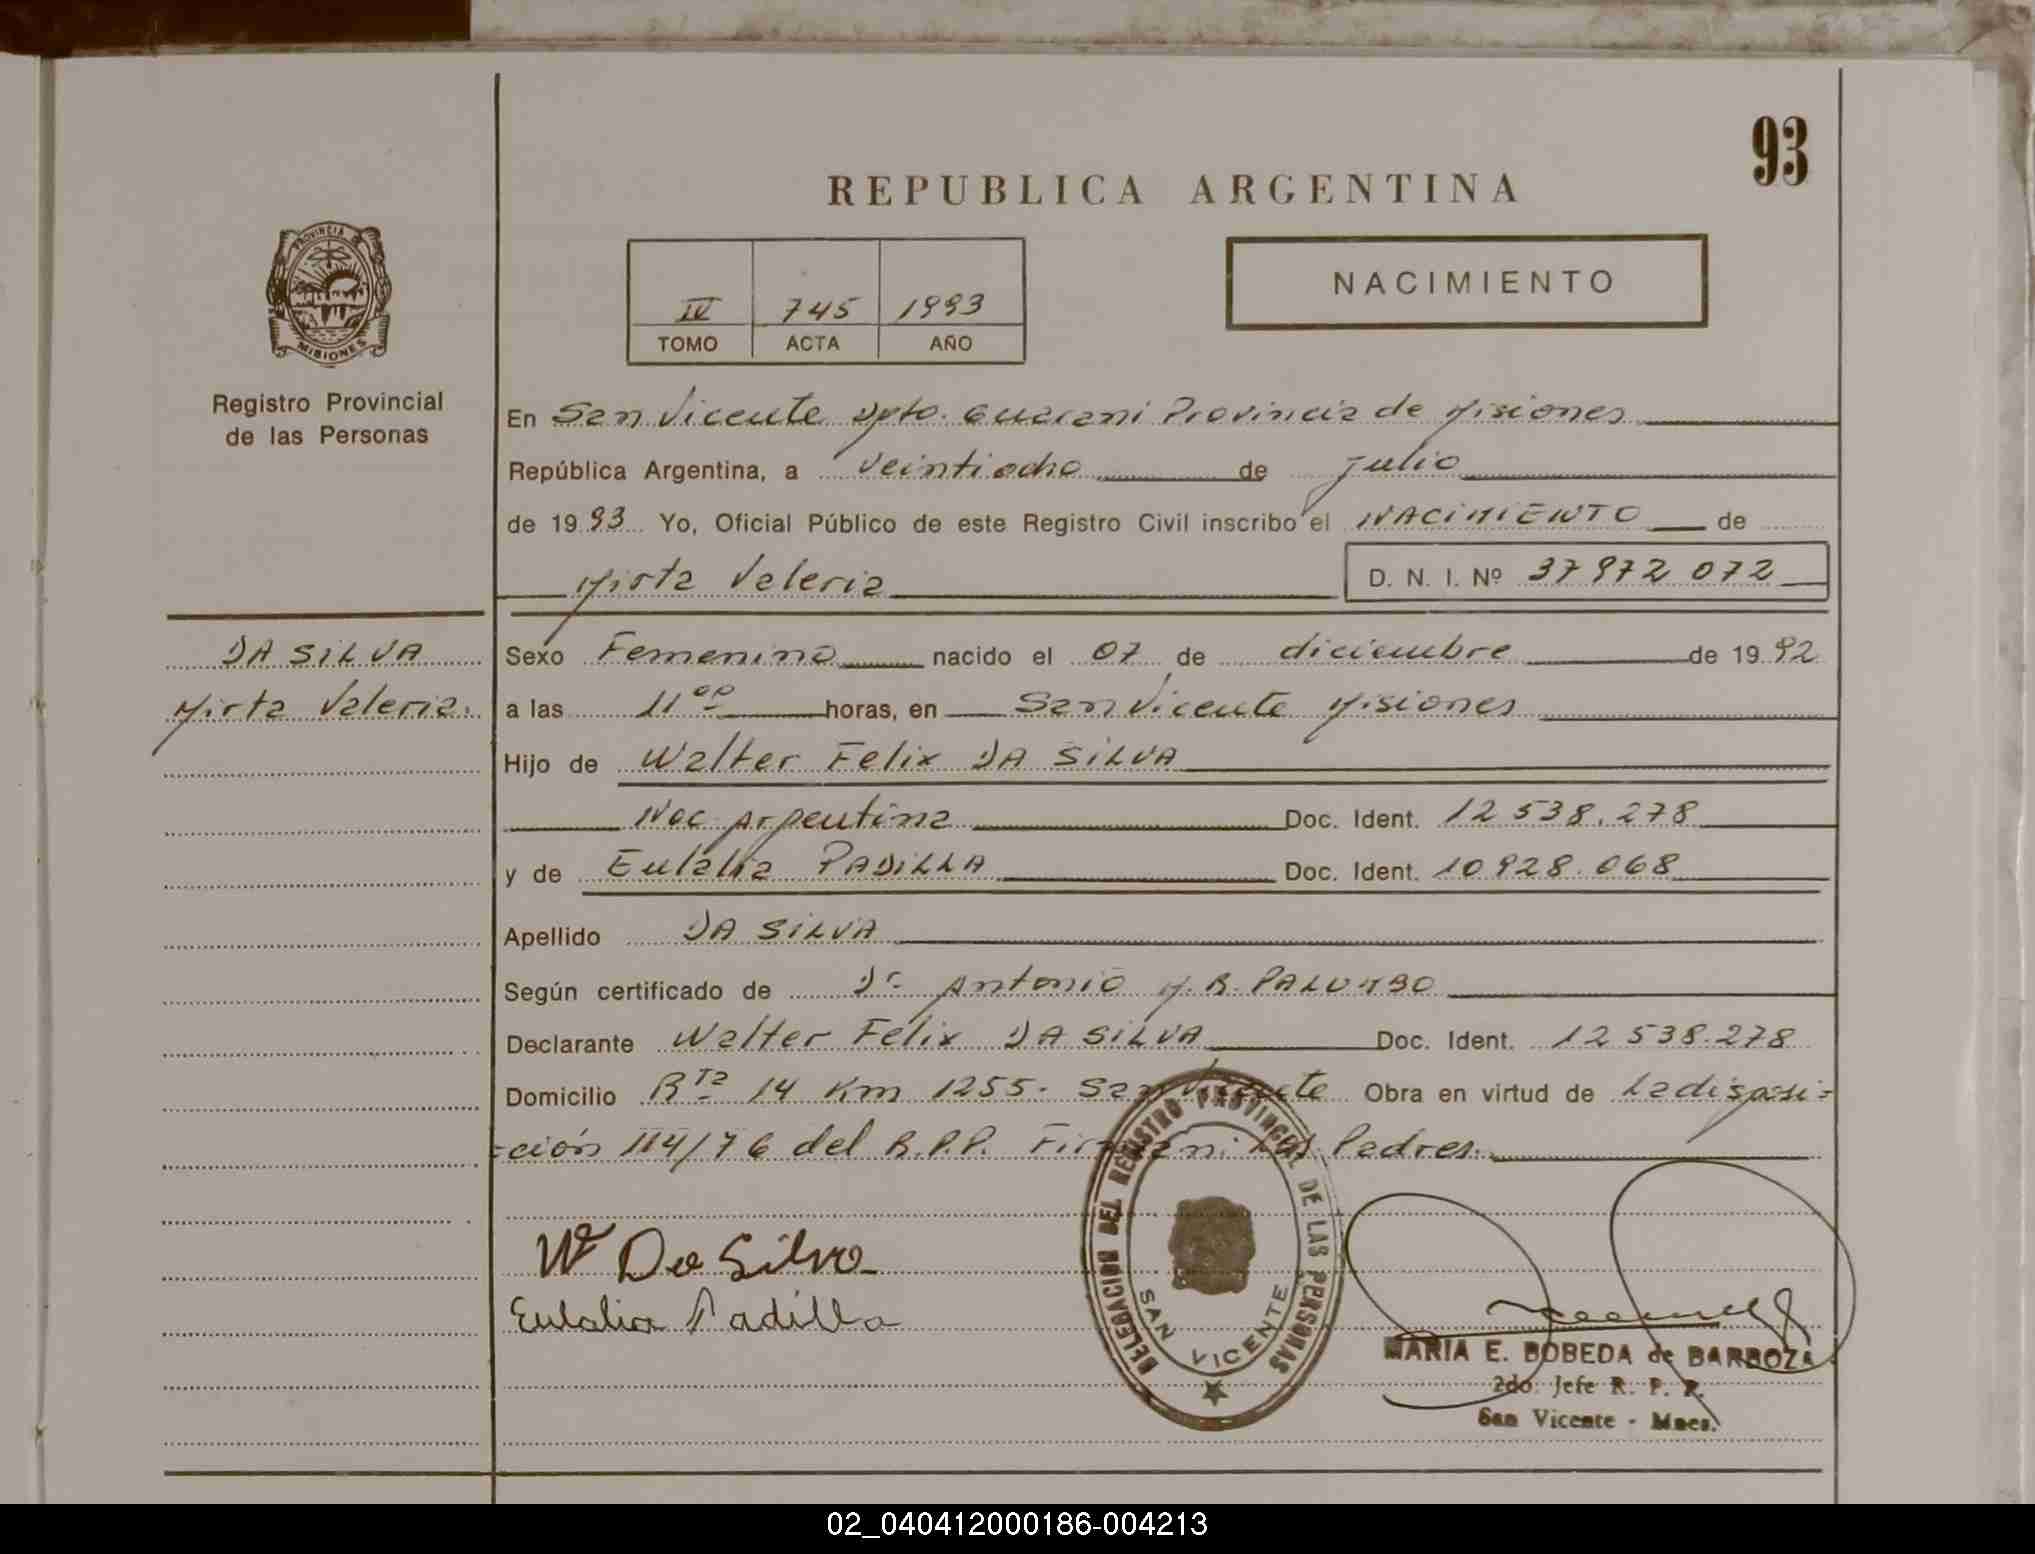 93
REPUBLICA ARGENTINA
PROVINCIA DE
MISIONES
Registro Provincial
de las Personas
IV 745 1993
TOMO ACTA AÑO
NACIMIENTO
En San Vicente Dpto. Guarani Provincia de Misiones
República Argentina, a veintiocho de julio
de 1993 Yo, Oficial Público de este Registro Civil inscribo el NACIMIENTO de
Mirta Valeria D. N. I. Nº 37972 072
DA SILVA
Mirta Valeria.
Sexo Femenino nacido el 07 de diciembre de 1992
a las 11⁰⁰ horas, en San Vicente Misiones
Hijo de Walter Felix DA SILVA
Nac. Argentina Doc. Ident. 12 538.278
y de Eulalia PADILLA Doc. Ident. 10 928.068
Apellido DA SILVA
Según certificado de Dr. Antonio M. R. PALUMBO
Declarante Walter Felix DA SILVA Doc. Ident. 12 538.278
Domicilio Rta 14 Km 1255. San Vicente Obra en virtud de La disposi=
=ción 114/76 del R.P.P. Firman: Los Padres.
W Da Silva
Eulalia Padilla
DELEGACION DEL REGISTRO PROVINCIAL DE LAS PERSONAS
SAN VICENTE
MARIA E. BOBEDA de BARBOZA
2do. Jefe R. P. P.
San Vicente - Mnes.
02_040412000186-004213